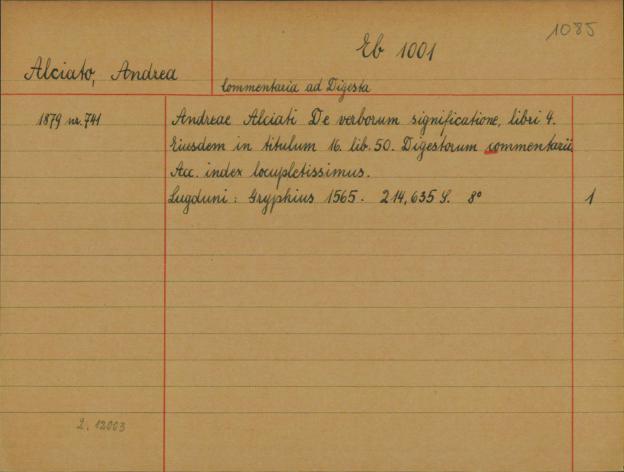 1085
Eb 1001
Alciato, Andrea
Commentaria ad Digesta
1879 nr. 741
Andreae Alciati De verborum significatione, libri 4.
Eiusdem in titulum 16. lib. 50. Digestorum commentarii
Acc. index locupletissimus.
Lugduni: Gryphius 1565. 214, 635 S. 8° 1
2. 12003